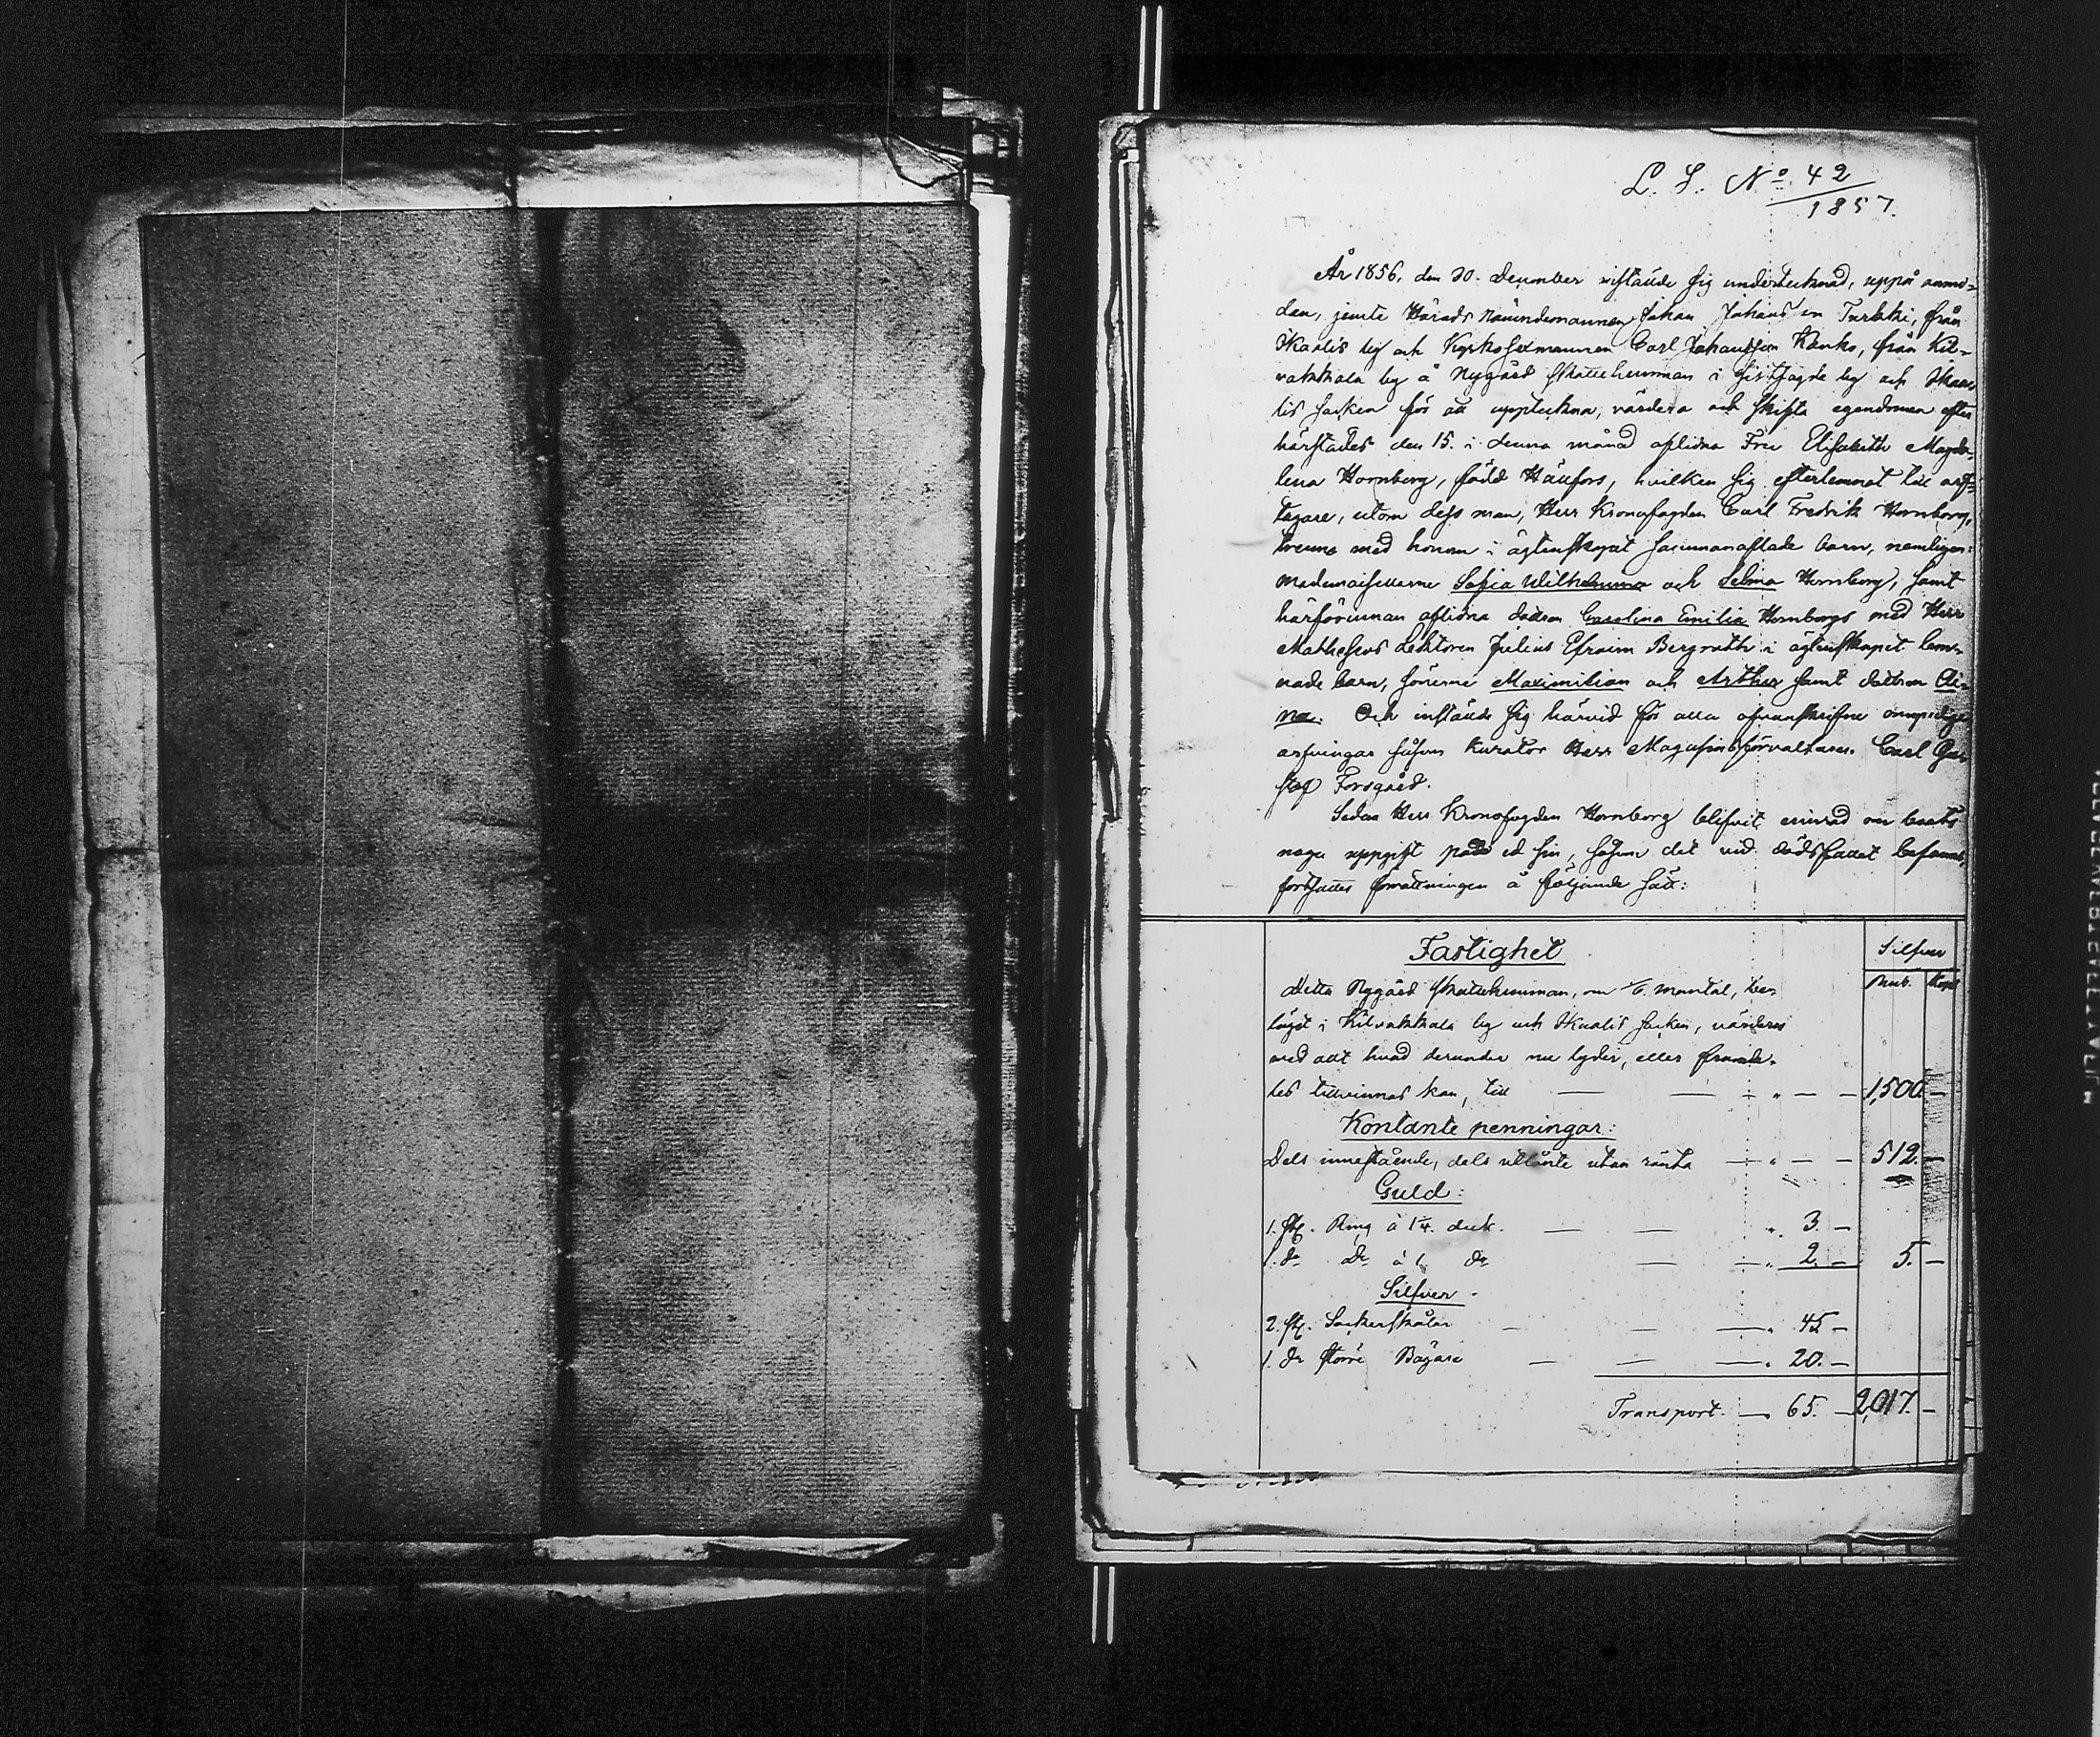 L. S. No 42
1857.
År 1856, den 30. december instälde sig undertecknad, uppå anmo-
dan, jemte Härads Nämndemannen Johan Johansson Turkki, från
Ikalis by och Kyrkosexmannen Carl Johansson Kanko, från Kil-
vakkala by å Nygård skattehemman i sistsagde by och Ikaa-
lis socken för att uppteckna, värdera och skifta egendomen efter
härstädes den 15. i denna månad aflidna Fru Elisabeth Magda-
lena Hornborg, född Häufors, hvilken sig efterlemnat till arf-
tagare, utom dess man, Herr Kronofogden Carl Fredrik Hornborg,
trenne med honom i ägtenskapet sammanaflade barn, nemligen:
mademoisellerne Sofia Wilhelmina och Selma Hornborg, samt
härförinnan aflidna dottren Carolina Emilia Hornborgs med Herr
Matheseos Lektoren Julius Efraim Bergroth i ägtenskapet lem-
nade barn, sönerne Maximilian och Arthur samt dottren Ai-
na. Och instälde sig härvid för alla ofvanskrifne omyndige
arfvingar såsom kurator Herr Magasinsförvaltaren Carl Gu-
staf Forsgård.
Sedan Herr Kronofogden Hornborg blifvit erinrad om boets
noga uppgift under ed sin, såsom det vid dödsfallet befanns,
fortsattes förrättningen å följande sätt:
Fastighet Silfver
Detta Nygård skattehemman, om 1/6. mantal, be- Rub. Kop.
läget i Kilvakkala by och Ikalis socken, värderas
med allt hvad derunder nu lyder, eller framde-
les tillvinnas kan, till — — — " — — 1,500. —
Kontante penningar:
Dels innestående, dels utlånte utan ränta — " — — 512. —
Guld:
1. st. Ring à 1 1/4. duk. — — " 3. —
1. do do à 1 do — — " 2. — 5. —
Silfver.
2. st. Sockerskålar — — — " 45 —
1. do större Bägare — — — " 20. —
Transport. — 65. — 2,017. —